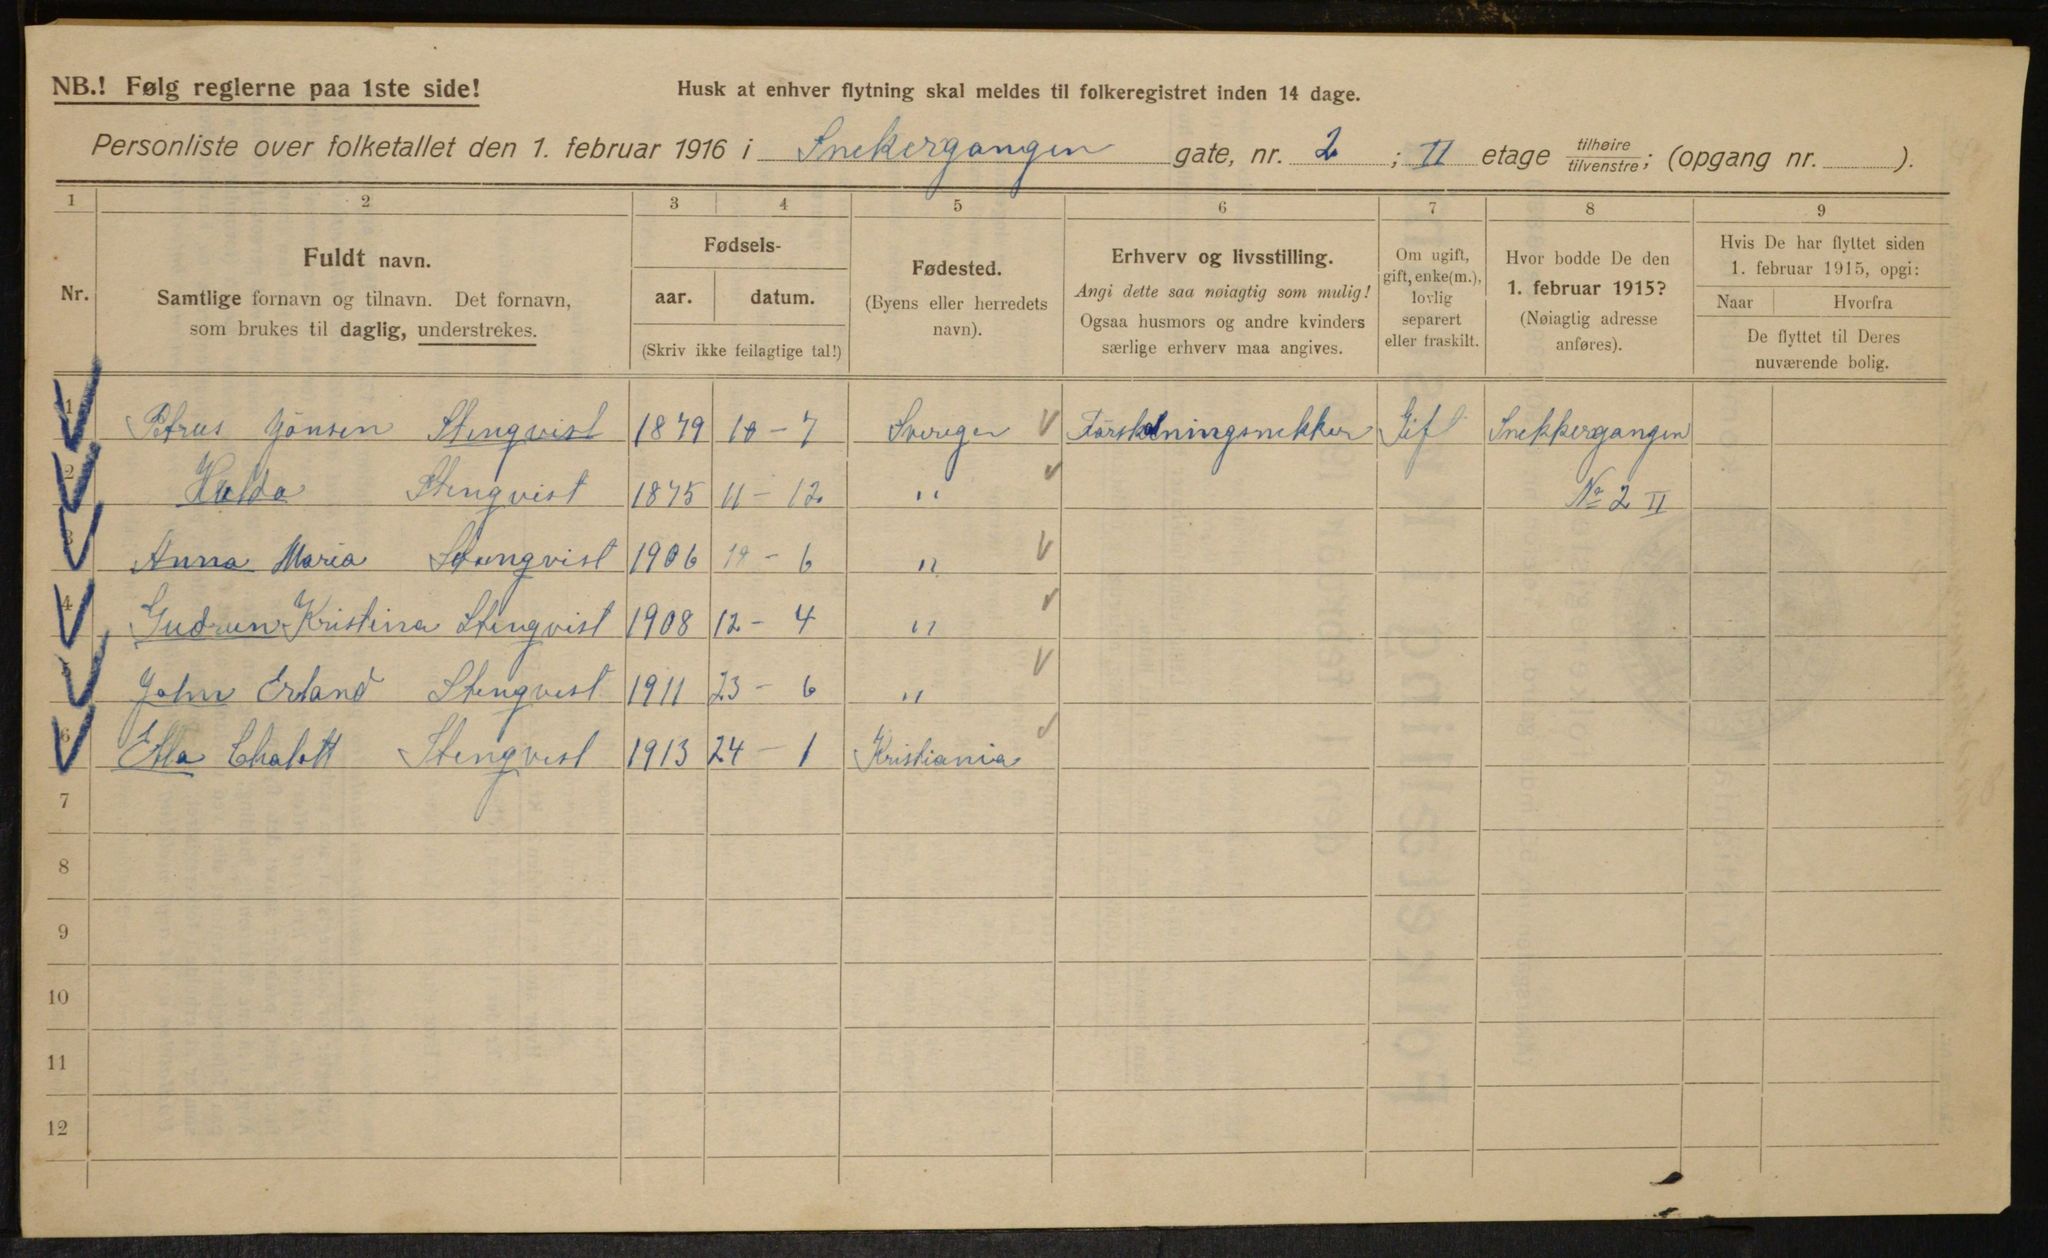 NB.! Følg reglerne paa 1ste side!
Husk at enhver flytning skal meldes til folkeregistret inden 14 dage.
Personliste over folketallet den 1. februar 1916 i Snekergangen gate, nr. 2 ; II etage tilhøire/tilvenstre; (opgang nr. ).
1 2 3 4 5 6 7 8 9
Nr.
Fuldt navn.
Samtlige fornavn og tilnavn. Det fornavn,
som brukes til daglig, understrekes.
Fødsels-
aar. datum.
(Skriv ikke feilagtige tal!)
Fødested.
(Byens eller herredets
navn).
Erhverv og livsstilling.
Angi dette saa nøiagtig som mulig!
Ogsaa husmors og andre kvinders
særlige erhverv maa angives.
Om ugift,
gift, enke(m.),
lovlig
separert
eller fraskilt.
Hvor bodde De den
1. februar 1915?
(Nøiagtig adresse
anføres).
Hvis De har flyttet siden
1. februar 1915, opgi:
Naar Hvorfra
De flyttet til Deres
nuværende bolig.
1 Petrus Jönsen Stenqvist 1879 10 - 7 Sverige Gift Snekkergangen
2 Hulda Stenqvist 1875 11 - 12 " No 2 II
3 Anna Maria Stenqvist 1906 10 - 6 "
4 Gudrun Kristina Stenqvist 1908 12 - 4 "
5 John Erland Stenqvist 1911 23 - 6 "
6 Ella Chalott Stenqvist 1913 24 - 1 Kristiania
7
8
9
10
11
12